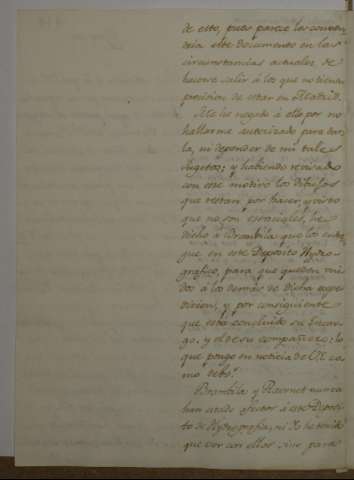 de esto, pues parece les conven-
dria este documento en las
circunstancias actuales de
hacerse salir á los que no tienen
precision de estar en Madrid.
Me he negado á ello por no
hallarme autorizado para dar-
la, ni depender de mi tales
sugetos; y habiendo revisado
con este motivo los dibujos
que restan por hacer, y visto
que no son esenciales, he
dicho á Brambila que los entre-
gue en este Deposito Hydro-
grafico, para que queden uni-
dos á los demas de dicha expe-
dicion, y por consiguiente
que esta concluido su encar-
go, y el de su compañero; lo
que pongo en noticia de VE co-
mo debo.
Brambila y Ravenet nunca
han estado afectos á este Deposi-
to de Hydrografia, ni yo he tenido
que ver con ellos sino para